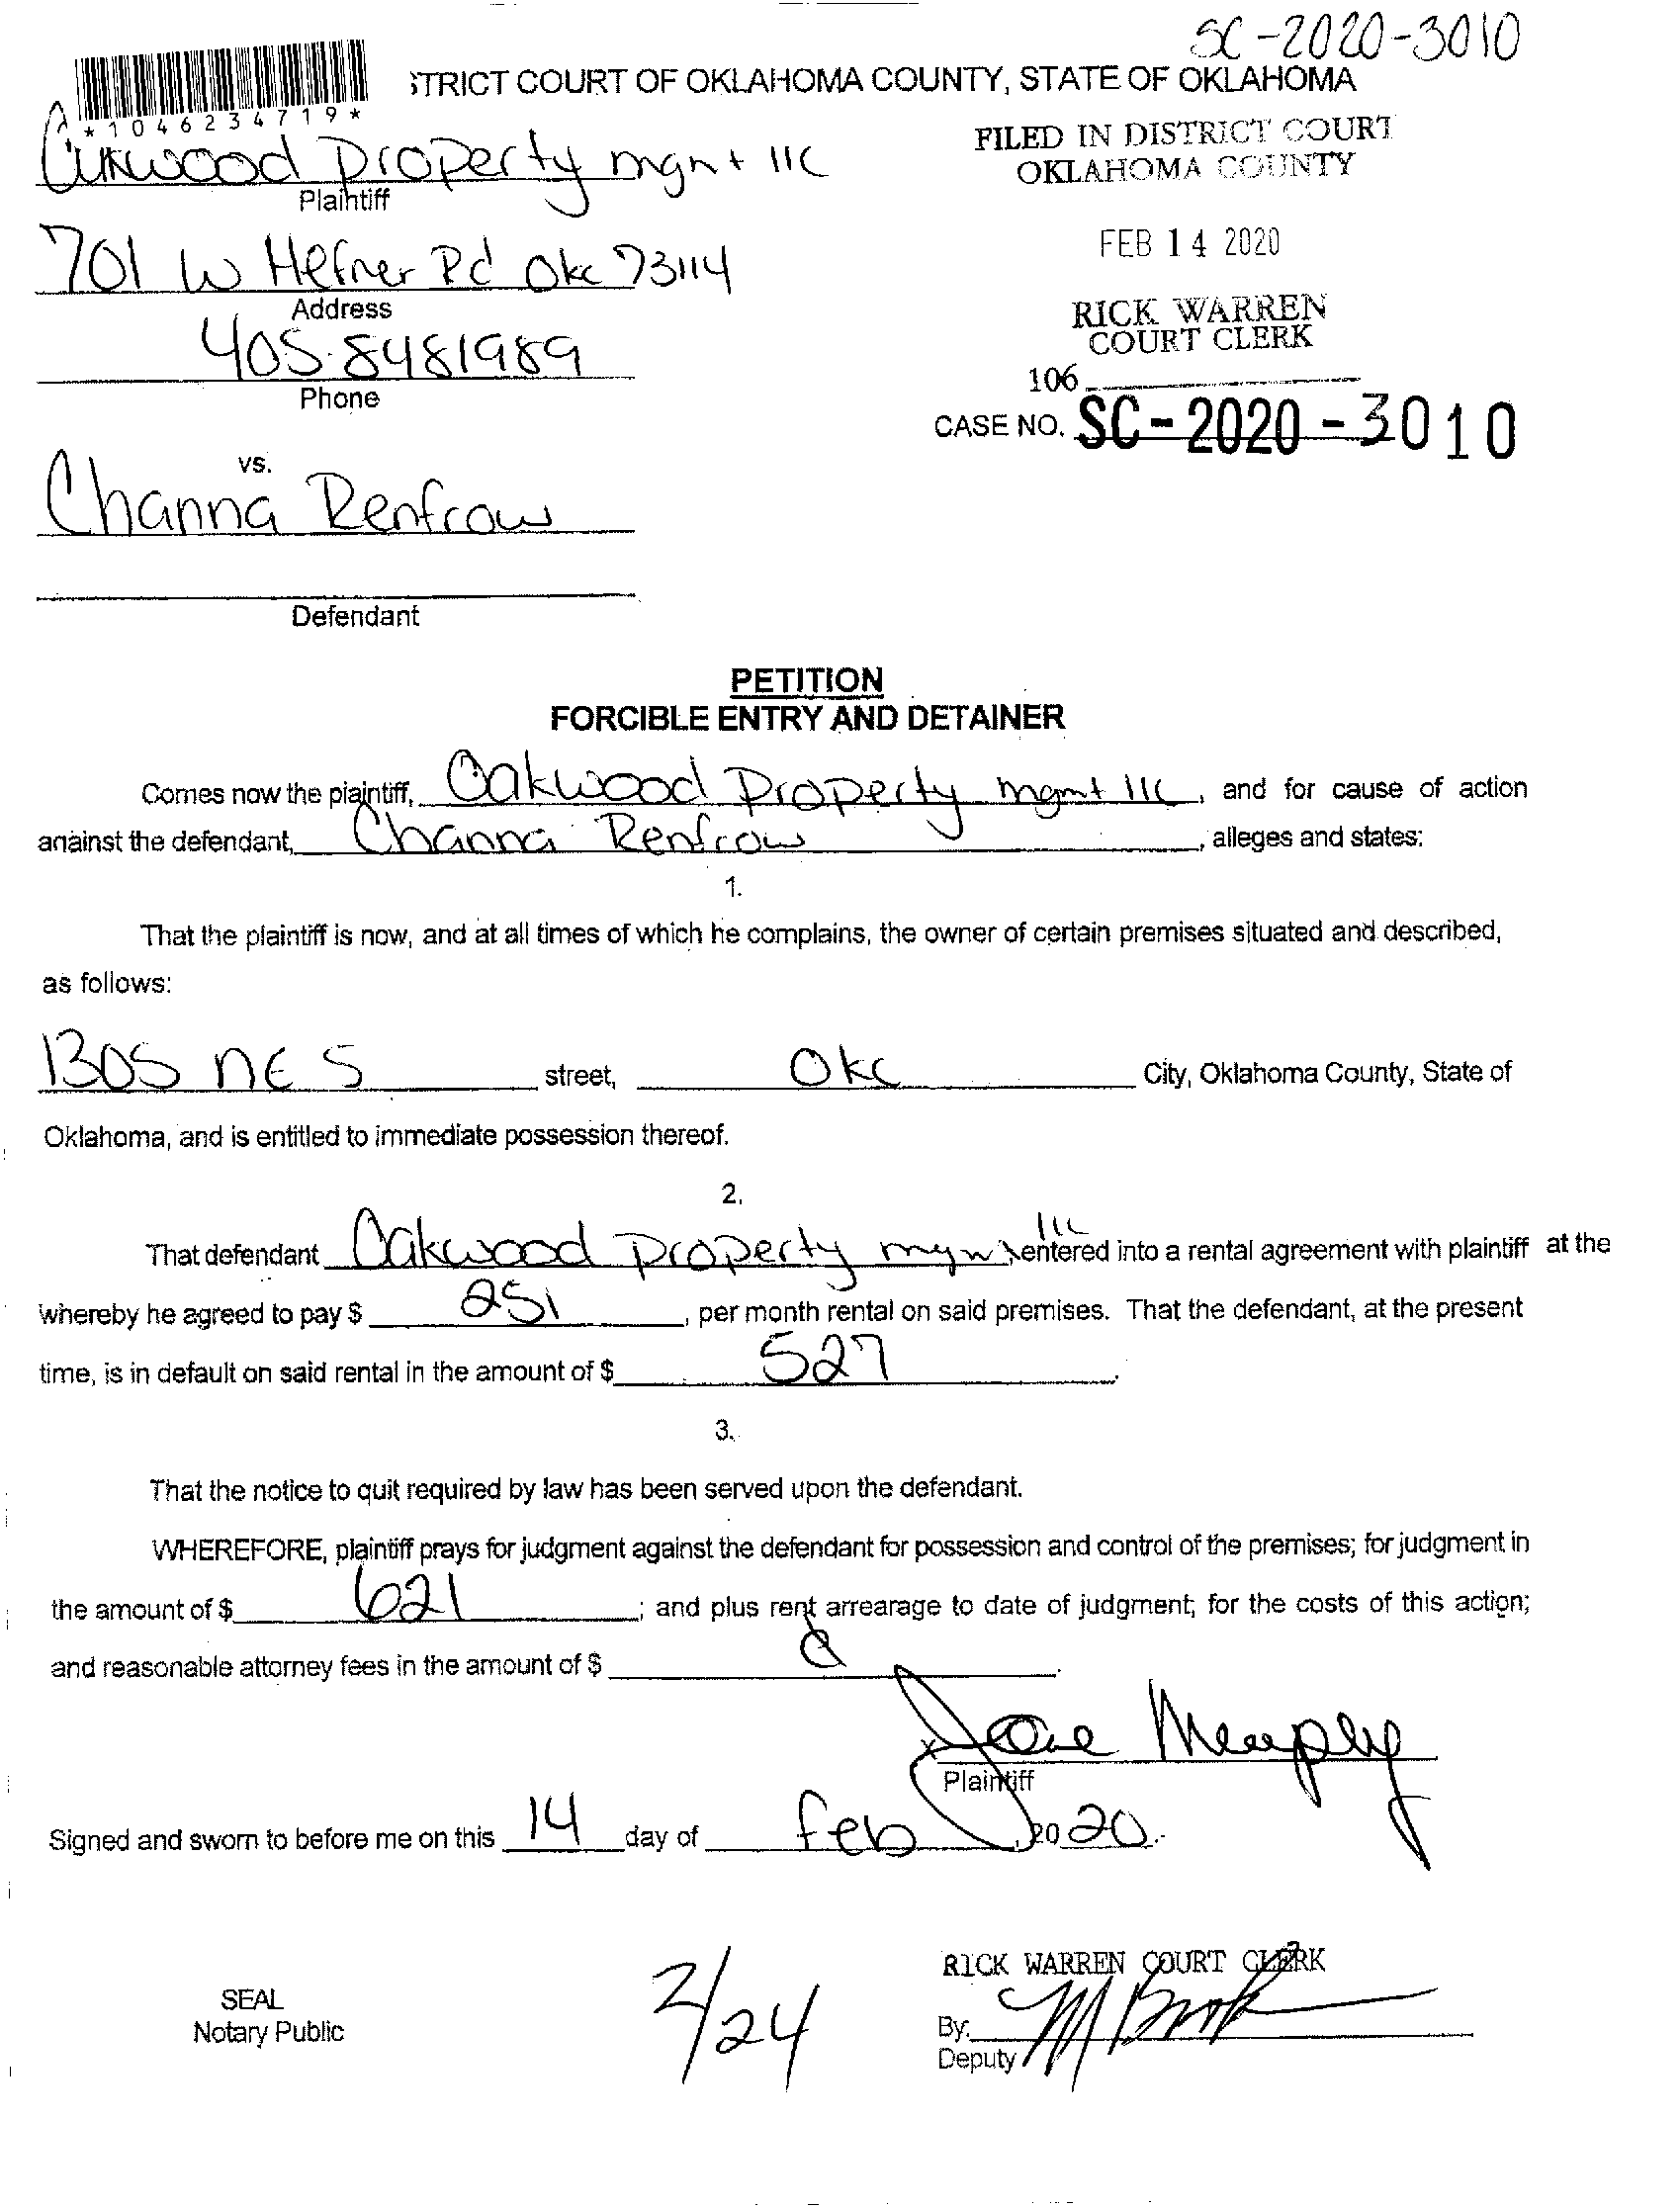 SC-2020-3010
STRICT COURT OF OKLAHOMA COUNTY, STATE OF OKLAHOMA
*1046234719*
FILED IN DISTRICT COURT
OKLAHOMA COUNTY
Oakwood Property mgnt llc
Plaintiff
FEB 14 2020
701 W Hefner Rd Okc 73114
Address
RICK WARREN
COURT CLERK
405-8481989
Phone
106
CASE NO. SC-2020-3010
vs.
Channa Renfrow
Defendant
PETITION
FORCIBLE ENTRY AND DETAINER
Comes now the plaintiff, Oakwood Property mgmt llc, and for cause of action
against the defendant, Channa Renfrow, alleges and states:
1.
That the plaintiff is now, and at all times of which he complains, the owner of certain premises situated and described,
as follows:
1305 NE 5 street, Okc City, Oklahoma County, State of
Oklahoma, and is entitled to immediate possession thereof.
2.
That defendant Oakwood Property llc entered into a rental agreement with plaintiff at the
whereby he agreed to pay $ 251, per month rental on said premises. That the defendant, at the present
time, is in default on said rental in the amount of $ 527.
3.
That the notice to quit required by law has been served upon the defendant.
WHEREFORE, plaintiff prays for judgment against the defendant for possession and control of the premises; for judgment in
the amount of $ 621; and plus rent arrearage to date of judgment; for the costs of this action;
and reasonable attorney fees in the amount of $
x Jane Murphy
Plaintiff
Signed and sworn to before me on this 14 day of Feb, 2020.
RICK WARREN COURT CLERK
SEAL
Notary Public
2/24
By:
Deputy